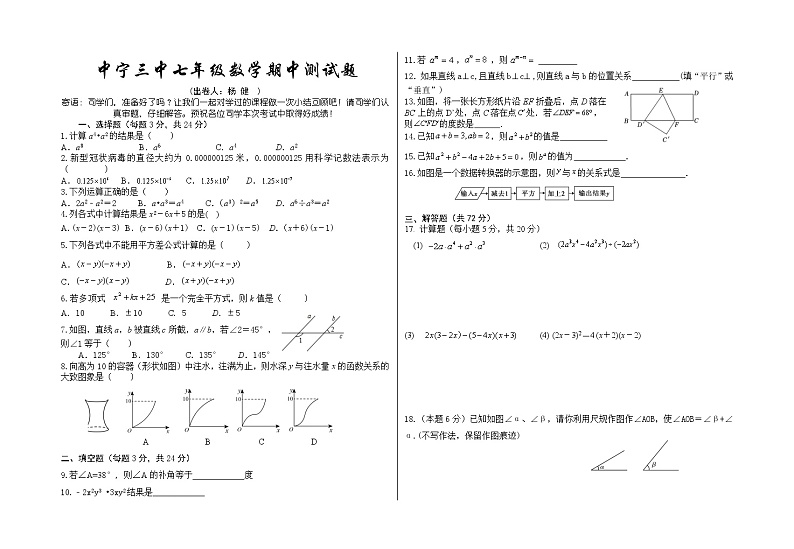 中宁三中七年级数学期中测试题
（出卷人：杨 健 ）
寄语：同学们，准备好了吗？让我们一起对学过的课程做一次小结回顾吧！请同学们认
真审题、仔细解答。预祝各位同学本次考试中取得好成绩！
一、选择题（每题 3 分，共 24 分）
1.计算 a⁴•a²的结果是（ ）
A．a⁸ B．a⁶ C．a⁴ D．a²
2.新型冠状病毒的直径大约为 0.000000125 米，0.000000125 用科学记数法表示为
（ ）
3.下列运算正确的是（ ）
A．2a²﹣a²=2 B．a•a³=a⁴ C．（a³）²=a⁵ D．a⁶÷a³=a²
4.列各式中计算结果是 x²﹣6x＋5 的是( )
A.(x－2)(x－3) B．(x－6)(x＋1) C．(x－1)(x－5) D．(x＋6)(x－1)
5.下列各式中不能用平方差公式计算的是（ ）
A．(x－y)(－x＋y) B．(－x＋y)(－x－y)
C．(－x－y)(x－y) D．(x＋y)(－x＋y)
6.若多项式 x²＋kx＋25 是一个完全平方式，则 k 值是（ ）
A．10 B．±10 C．5 D．±5
7.如图，直线 a，b 被直线 c 所截，a∥b，若∠2=45°，
则∠1 等于（ ）
A．125° B．130° C．135° D．145°
a b 1 2 c
8.向高为 10 的容器（形状如图）中注水，注满为止，则水深 y 与注水量 x 的函数关系的
大致图象是（ ）
y 10 O x y 10 O x y 10 O x y 10 O x
A B C D
二、填空题（每题 3 分，共 24 分）
9.若∠A=38°，则∠A 的补角等于____________度
10.﹣2x²y³ •3xy²结果是____________
11.若 aᵐ＝4，aⁿ＝8，则 aᵐ⁻ⁿ＝ _________
12. 如果直线 a⊥c,且直线 b⊥c⊥,则直线 a 与 b 的位置关系___________(填“平行”或
“垂直”)
13.如图，将一张长方形纸片沿 EF 折叠后，点 D 落在
BC 上的点 D′处，点 C 落在点 C′处．若∠DEF＝68°，
则∠C′FD′的度数是______．
A E D B D′ F C C′
14.已知 a＋b＝3,ab＝2，则 a²＋b²的值是___________
15.已知 a²＋b²－4a＋2b＋5＝0，则 bᵃ的值为____________．
16.如图是一个数据转换器的示意图，则 y 与 x 的关系式是________________．
输入x 减去1 平方 加上2 输出结果y
三、解答题（共 72 分）
17. 计算题（每小题 5 分，共 20 分）
(1) －2a·a⁴＋a²·a³ (2) (2a³x⁴－4a²x³)÷(－2ax²)
(3) 2x(3－2x)－(5－4x)(x＋3) (4) (2x－3)²—4(x＋2)(x－2)
18.（本题 6 分）已知如图∠α、∠β，请你利用尺规作图作∠AOB，使∠AOB＝∠β＋∠
α.(不写作法，保留作图痕迹)
α β